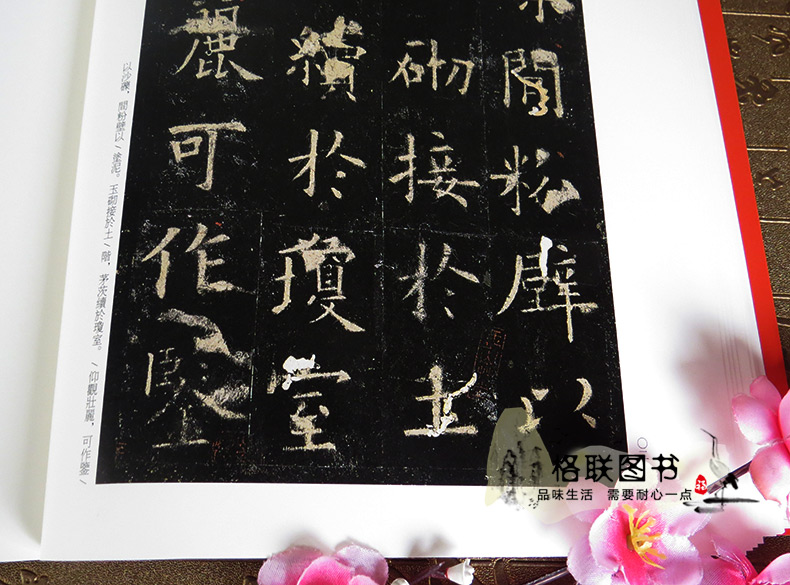 閒粉壁以
砌接於土
續於瓊室
麗可作鑒
以沙礫，間粉壁以/塗泥。玉砌接於土/階，茅茨續於瓊室。/仰觀壯麗，可作鑒/
格联图书
品味生活 需要耐心一点